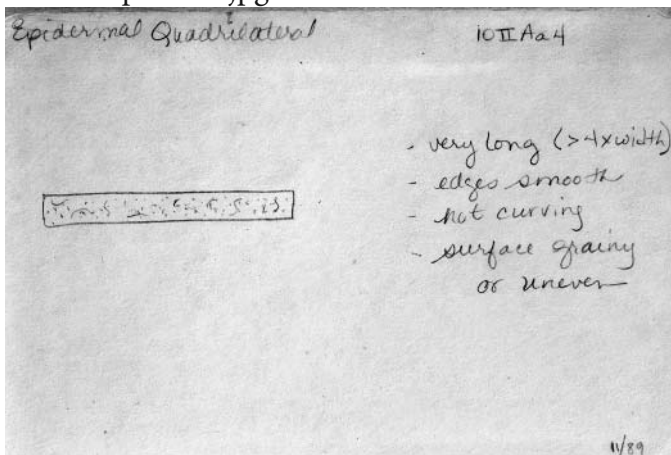 Epidermal Quadrilateral
10IIAa4
- very long (>4xwidth)
- edges smooth
- not curving
- surface grainy
or uneven
11/89